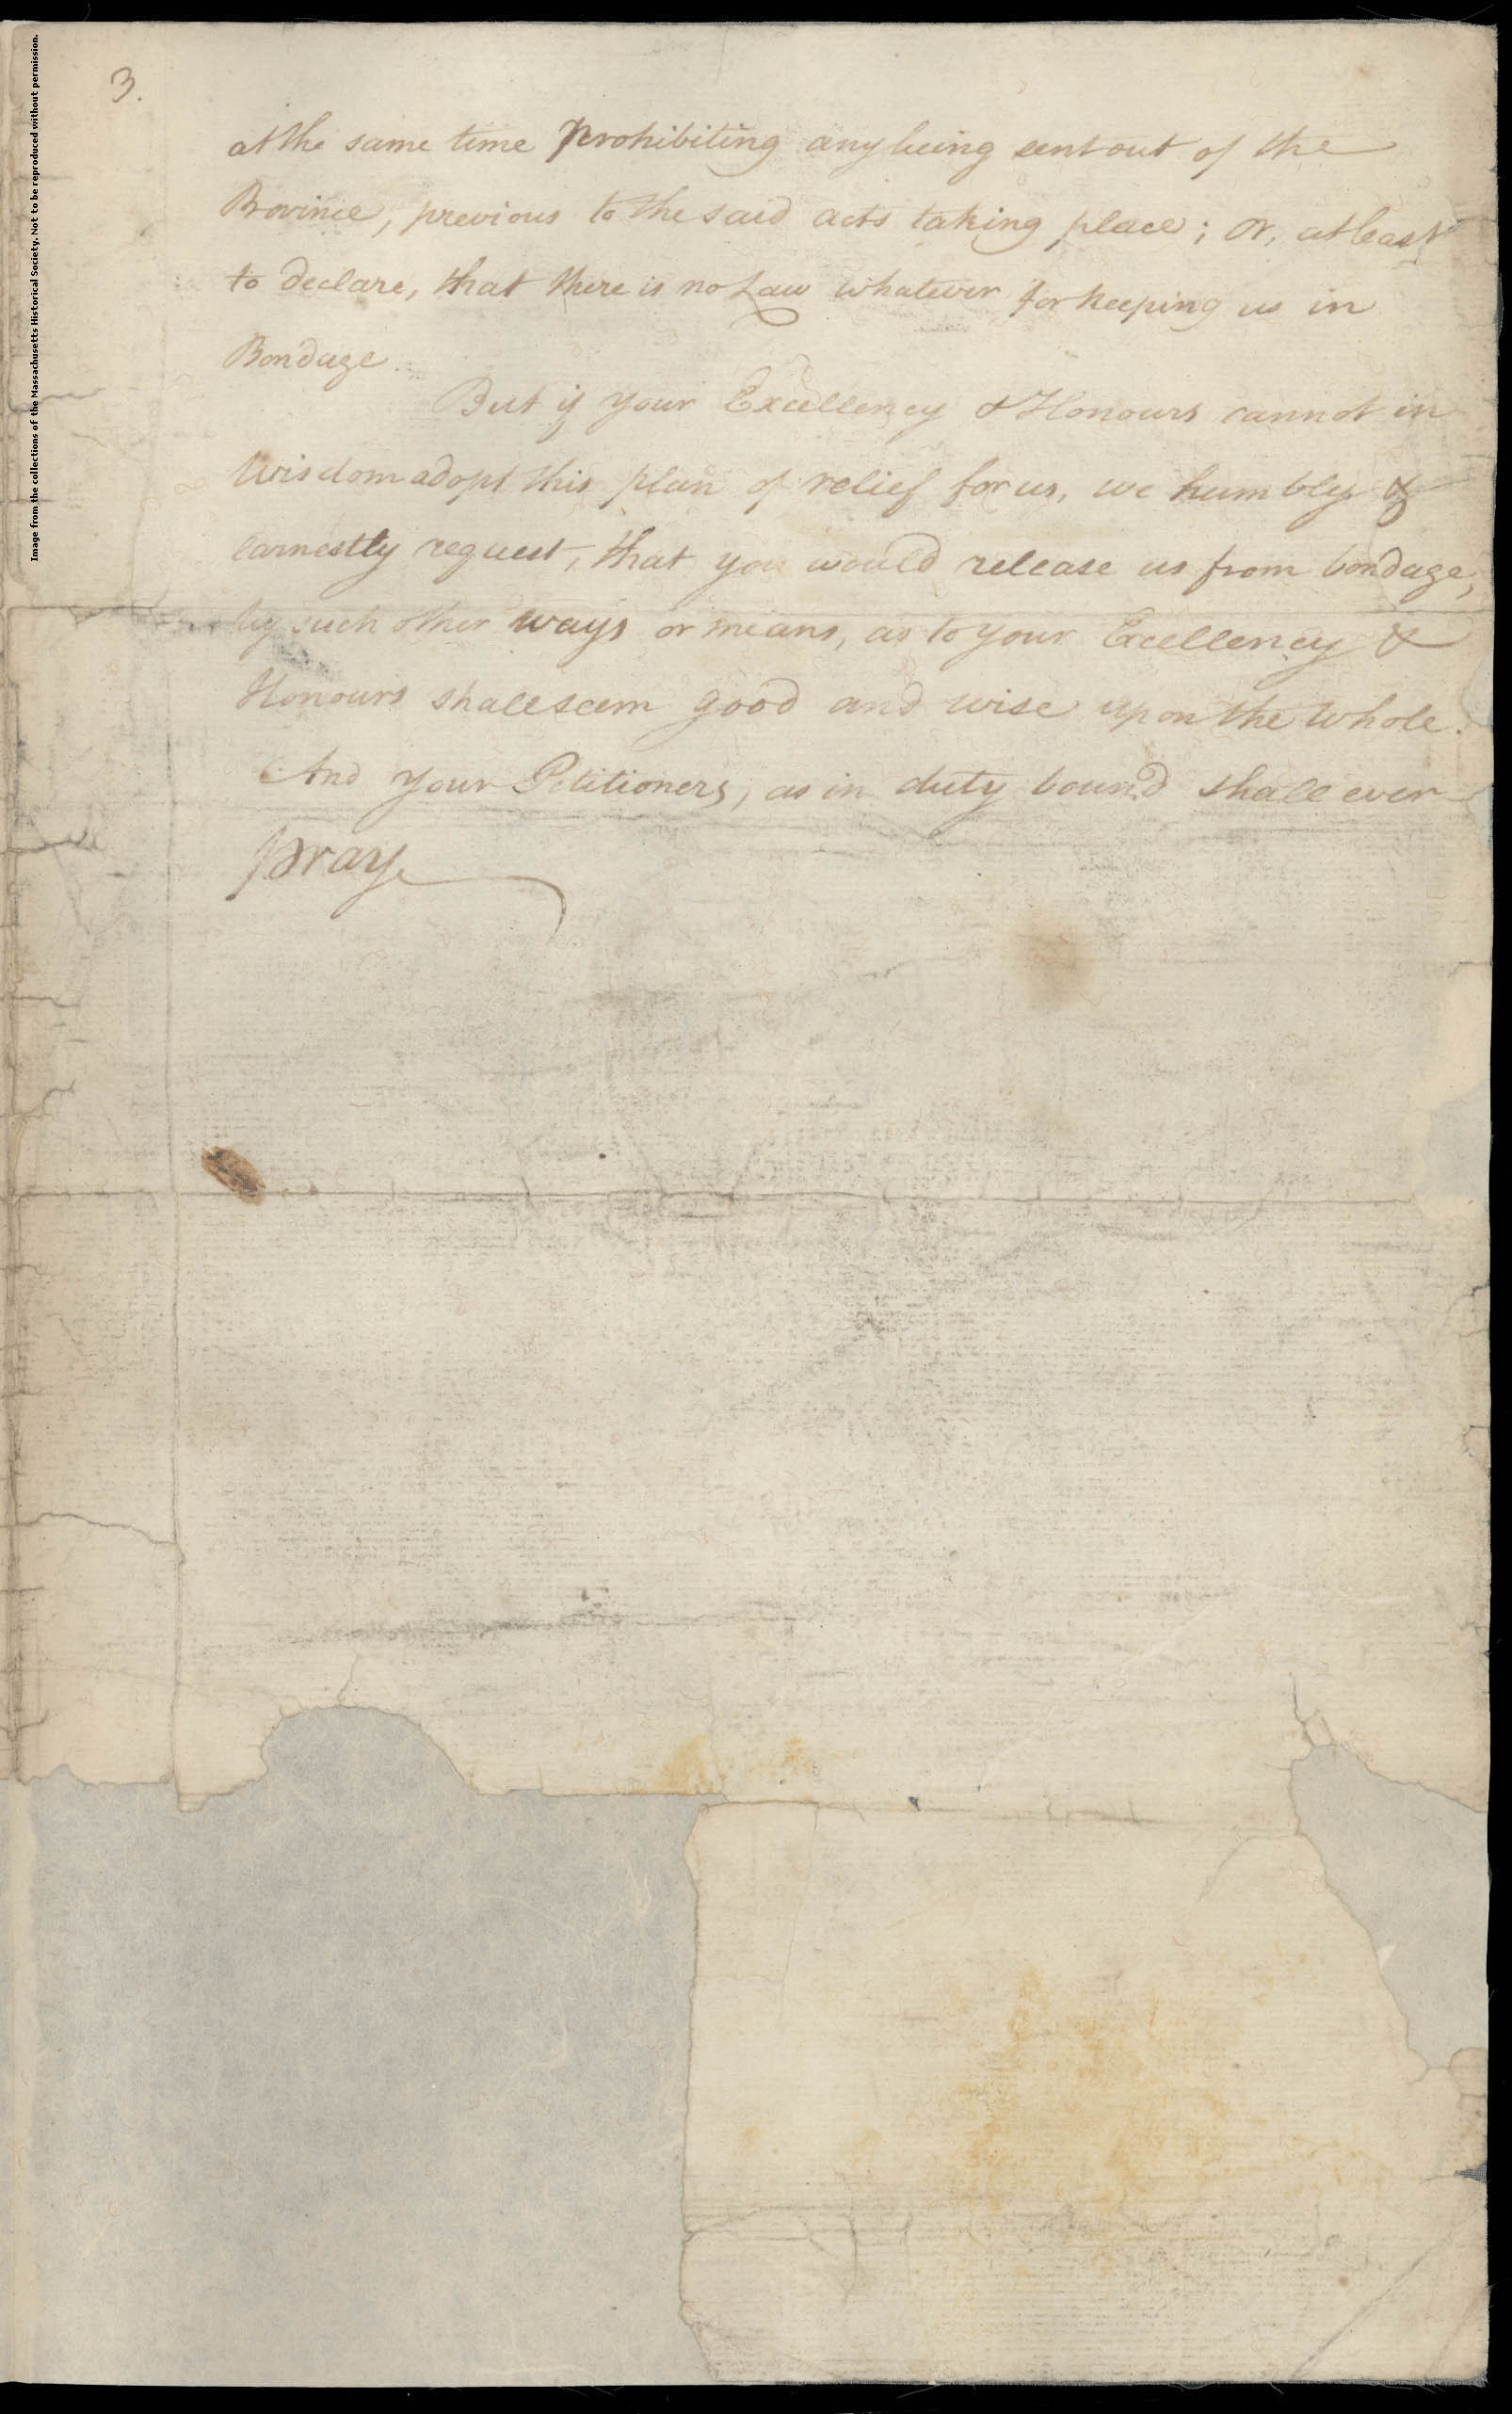 Image from the collections of the Massachusetts Historical Society. Not to be reproduced without permission.
3.
at the same time Prohibiting any being sent out of the
Province, previous to the said acts taking place; or, at least
to declare, that there is no Law whatever for keeping us in
Bondage.
But if your Excellency & Honours cannot in
Wisdom adopt this plan of relief for us, we humbly &
earnestly request, that you would release us from bondage,
by such other ways or means, as to your Excellency &
Honours shall seem good and wise upon the whole.
And your Petitioners, as in duty bound shall ever
pray